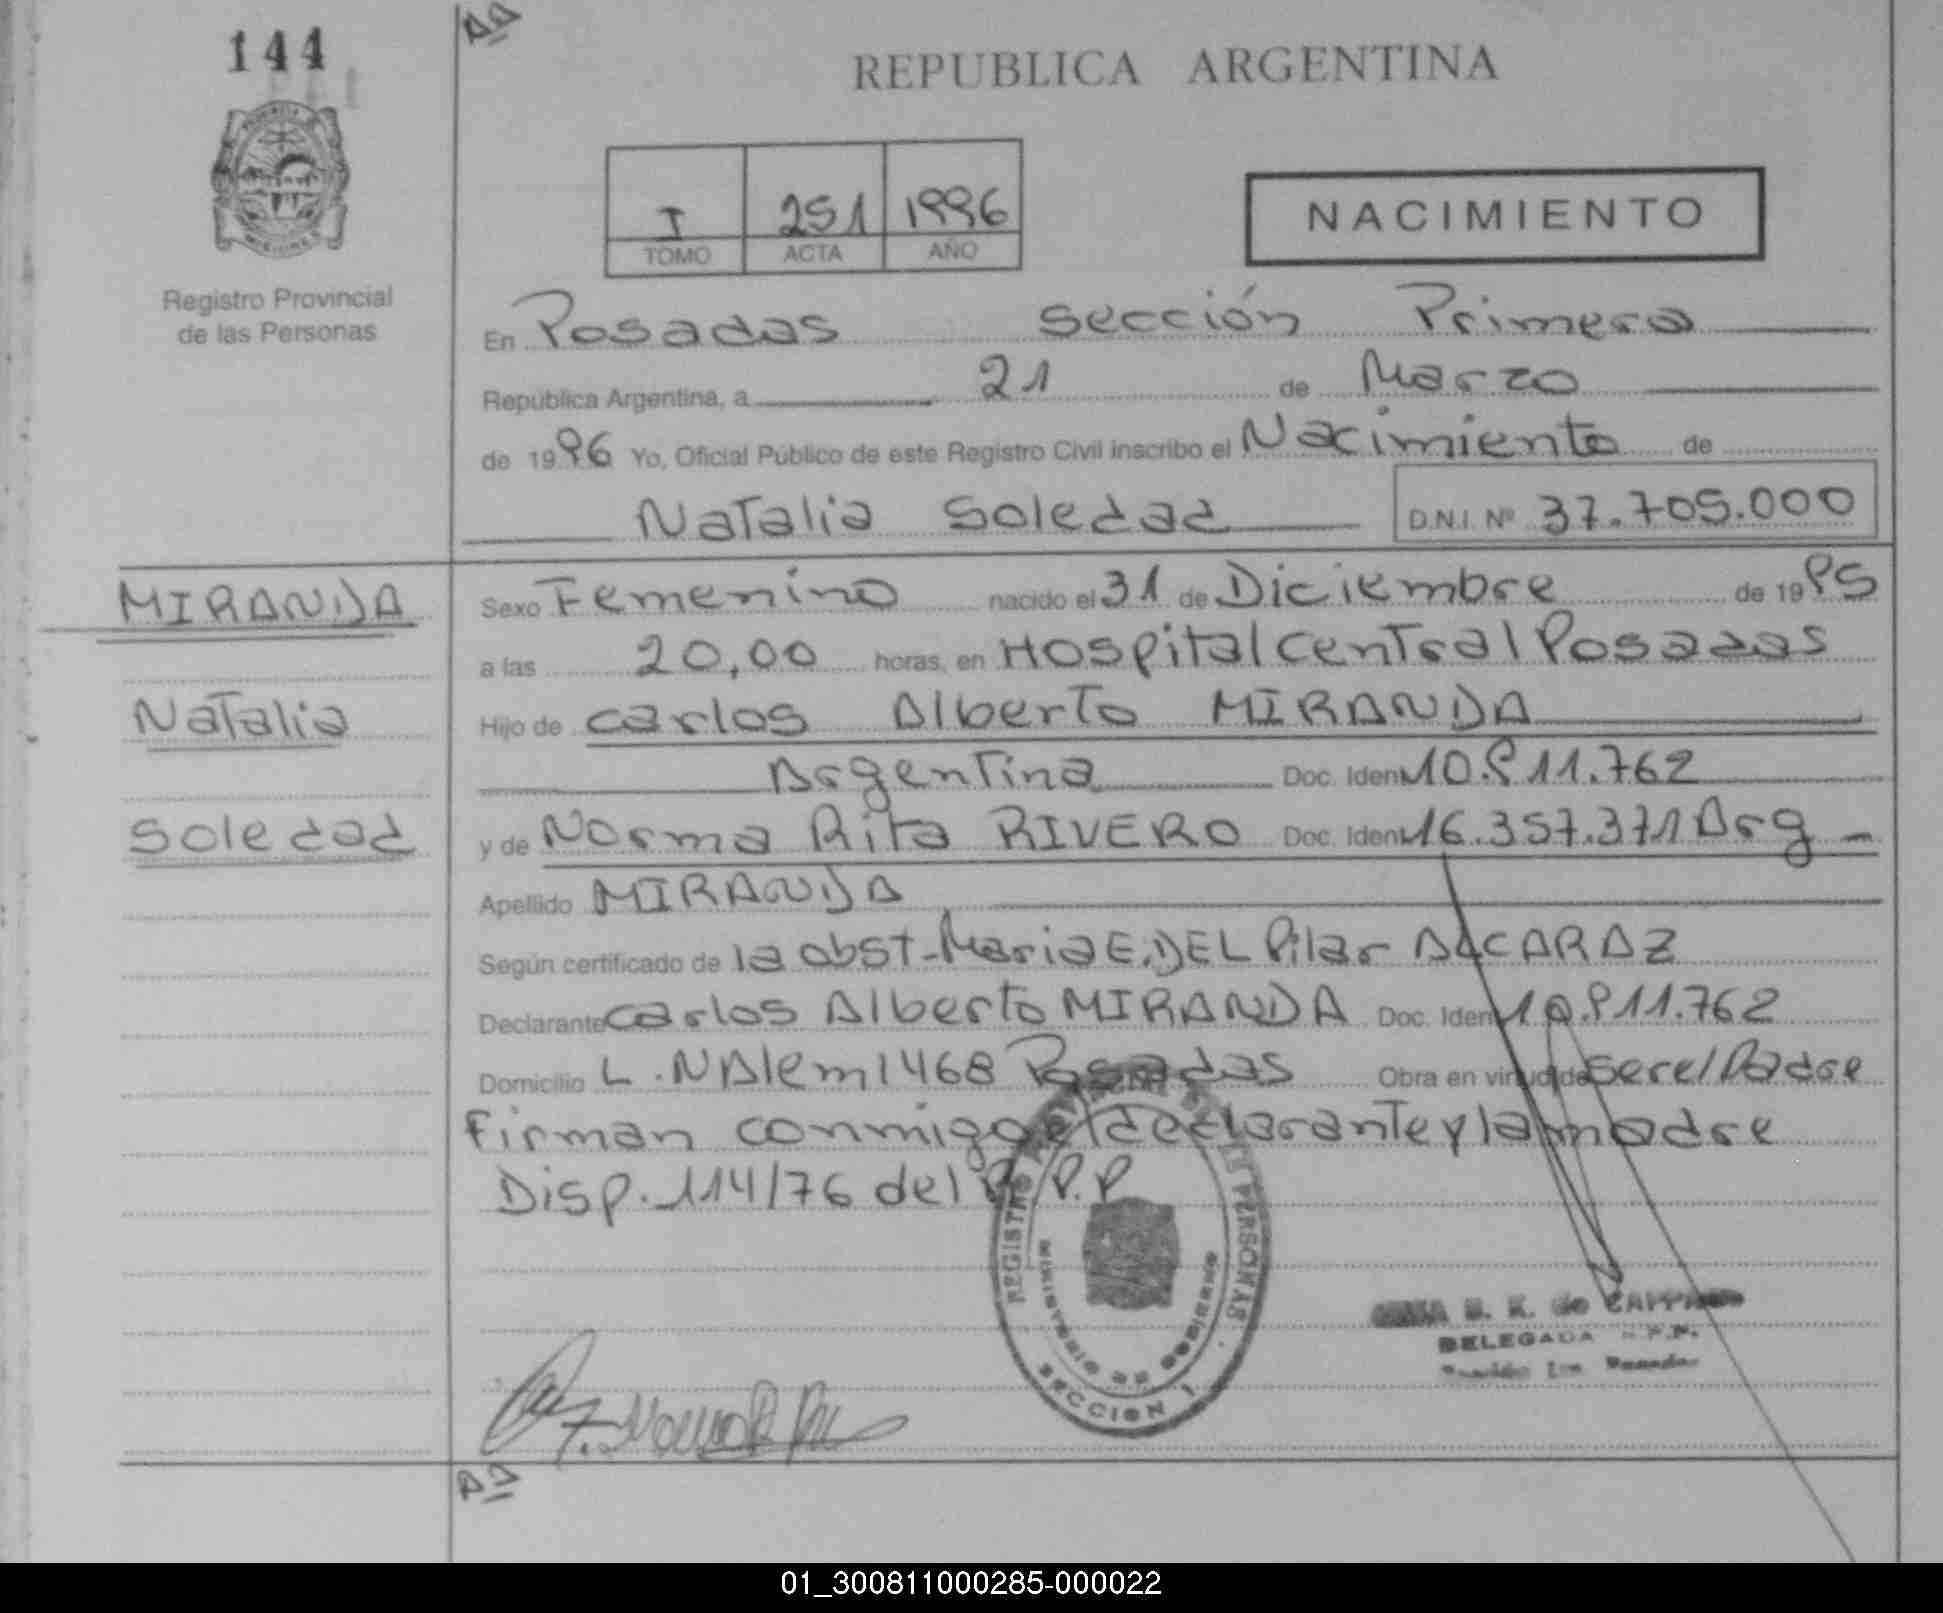 144
REPUBLICA ARGENTINA
I 251 1996
TOMO ACTA AÑO
NACIMIENTO
Registro Provincial
de las Personas
En Posadas sección Primera
República Argentina, a 21 de Marzo
de 1996 Yo, Oficial Público de este Registro Civil inscribo el Nacimiento de
Natalia Soledad D.N.I. Nº 37.705.000
MIRANDA
Natalia
Soledad
Sexo Femenino nacido el 31 de Diciembre de 1995
a las 20,00 horas, en Hospital Central Posadas
Hijo de Carlos Alberto MIRANDA
Argentina Doc. Ident. 10.811.762
y de Norma Rita RIVERO Doc. Ident. 16.357.371 Arg
Apellido MIRANDA
Según certificado de la obst-Maria E. DEL Pilar ALCARAZ
Declarante Carlos Alberto MIRANDA Doc. Ident. 10.811.762
Domicilio L.N Alem 1468 Posadas Obra en virtud de ser el Padre
Firman conmigo el declarante y la madre
Disp. 114/76 del R.P.P
REGISTRO PROVINCIAL DE LAS PERSONAS
MINISTERIO DE GOBIERNO
SECCION 1
DELEGADA R.P.P.
01_300811000285-000022